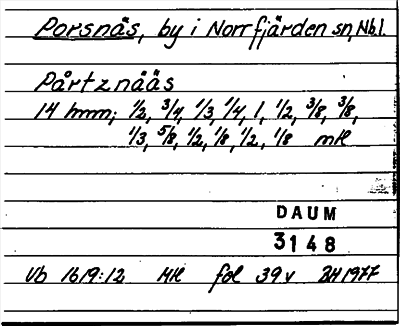 Porsnäs, by i Norrfjärden sn, Nb.l.
Pårtznääs
14 hmn; 1/2, 3/4, 1/3, 1/4, 1, 1/2, 3/8, 3/8,
1/3, 5/8, 1/2, 1/8, 1/2, 1/8 mtl
DAUM
3148
Vb 1619:12 Mtl fol 39v BH 1977